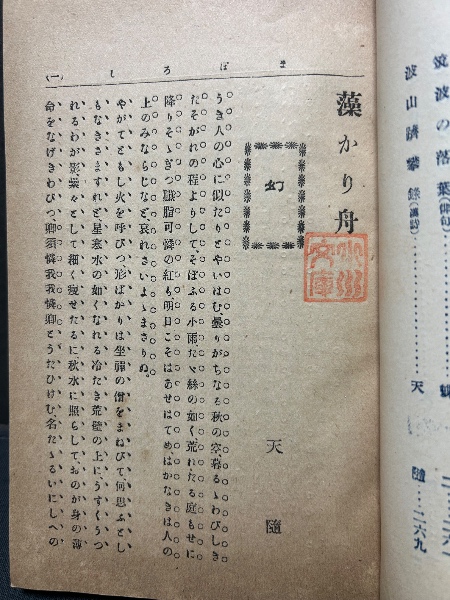 筑波の落葉(俳句)
波山躋攀錄(漢詩)……天隨…二六九
藻かり舟
小川文庫
幻
天隨
うき人の心に似たりとやいはむ、曇りがちなる秋の空、暮るゝわびしき
たそがれの程よりしてそぼふる小雨、たゞ絲の如く、荒れたる庭もせに
降りそゝぎつ、臙脂可憐の紅も、明日こそはあせはてめ、はかなきは人の
上のみならじなど、哀れさいよゝまさりぬ。
やがてともし火を呼びつ、形ばかりは坐禪の僧をまねびて、何思ふとし
もなきさますれど、星意水の如くなれる冷たき荒壁の上に、うすくうつ
れるわが影、煢々として細く瘦せたるに、秋水に照らして、おのが身の薄
命をなげきわびつ、卿須憐我我憐卿とうたひけむ、名たゝるいにしへの
まぼろし
(一)